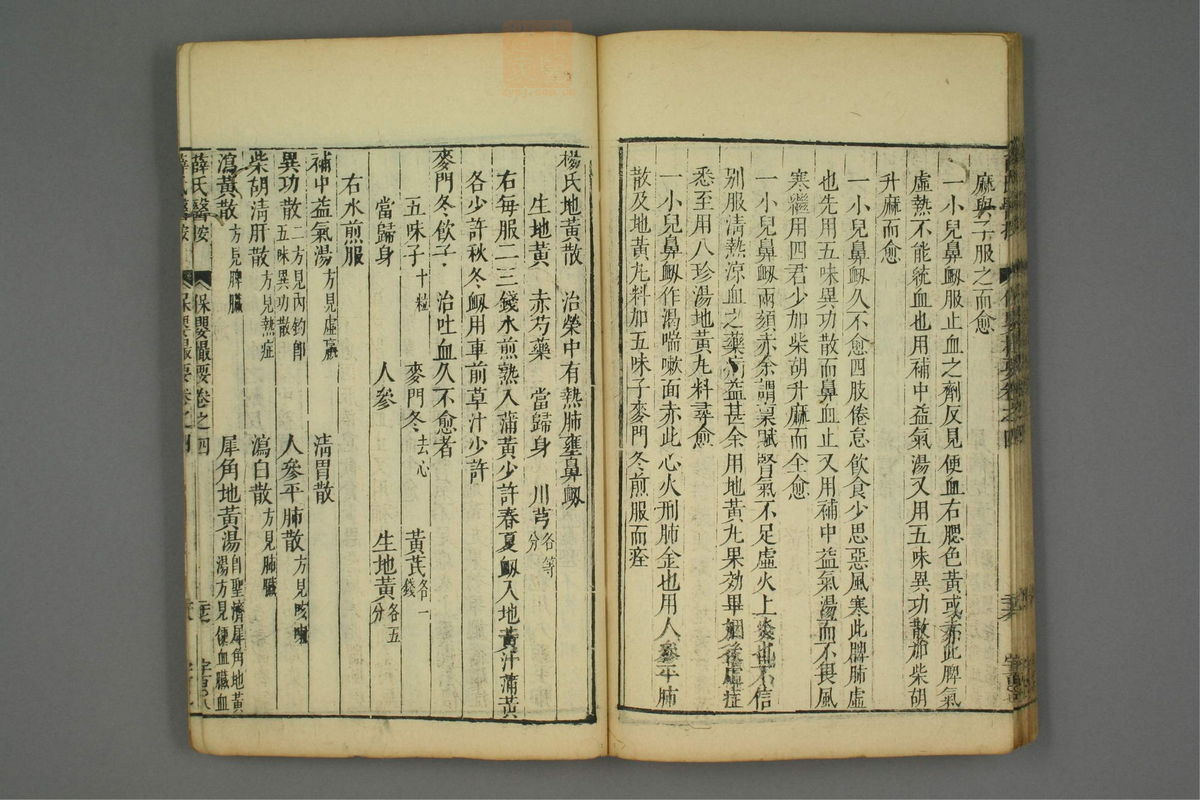 麻與子服之而愈
一小兒鼻衂服止血之劑反見便血右腮色黃或赤此脾氣
虛熱不能統血也用補中益氣湯又用五味異功散加柴胡
升麻而愈
一小兒鼻衂久不愈四肢倦怠飲食少思惡風寒此脾肺虛
也先用五味異功散而鼻血止又用補中益氣湯而不畏風
寒繼用四君少加柴胡升麻而全愈
一小兒鼻衂兩頰赤余謂稟賦腎氣不足虛火上炎也不信
別服清熱涼血之藥病益甚余用地黃丸果効畢姻後虛症
悉至用八珍湯地黃丸料尋愈
一小兒鼻衂作渴喘嗽面赤此心火刑肺金也用人參平肺
散及地黃丸料加五味子麥門冬煎服而痊
楊氏地黃散 治榮中有熱肺壅鼻衂
生地黃 赤芍藥 當歸身 川芎各等分
右每服二三錢水煎熟入蒲黃少許春夏衂入地黃汁蒲黃
各少許秋冬衂用車前草汁少許
麥門冬飲子 治吐血久不愈者
五味子十粒 麥門冬去心 黃芪各一錢
當歸身 人參 生地黃各五分
右水煎服
補中益氣湯方見虛羸 清胃散
異功散二方見內釣卽五味異功散 人參平肺散方見咳嗽
柴胡清肝散方見熱症 瀉白散方見肺臟
瀉黃散方見脾臟 犀角地黃湯卽聖濟犀角地黃湯方見便血臟血
薛氏醫按 保嬰撮要卷之四